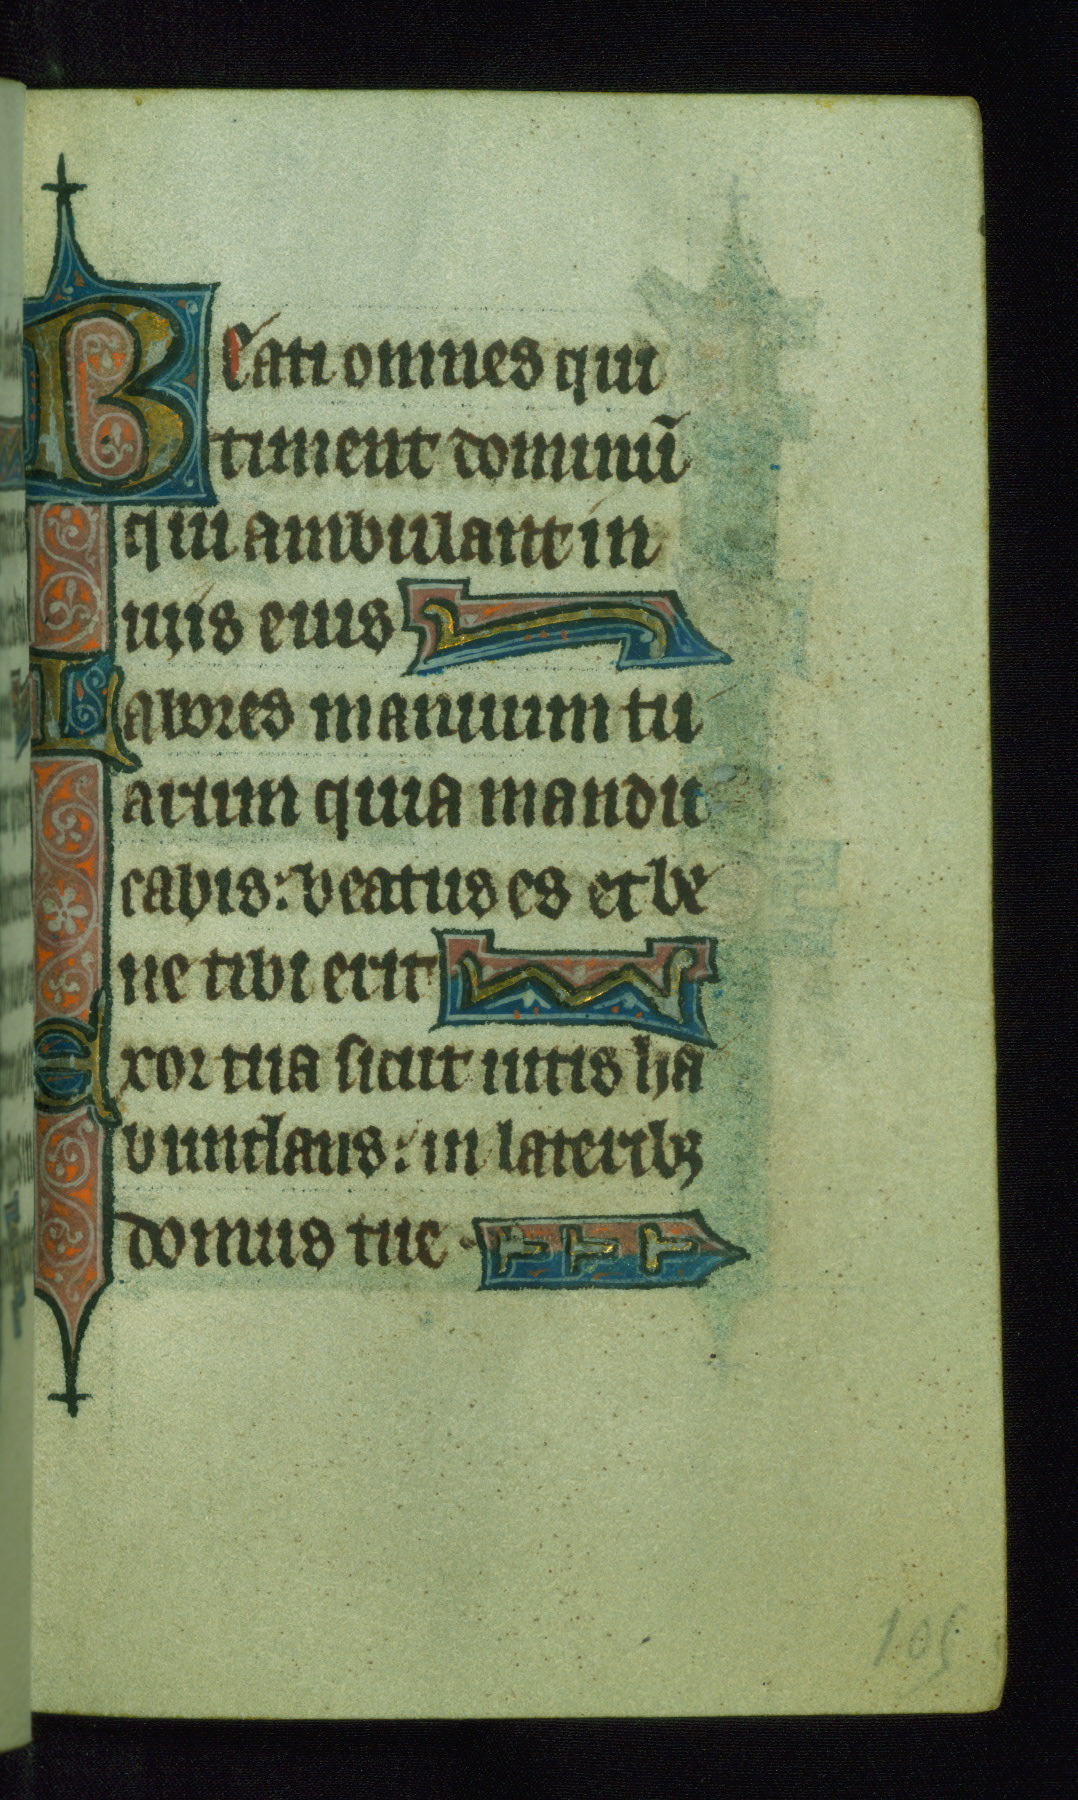 Beati omnes qui
timent dominū
qui ambulant in
uiis eius
Labores manuum tu
arum quia mandu
cabis: beatus es et be
ne tibi erit
Uxor tua sicut uitis ha
bundans: in lateribꝫ
domus tue
105